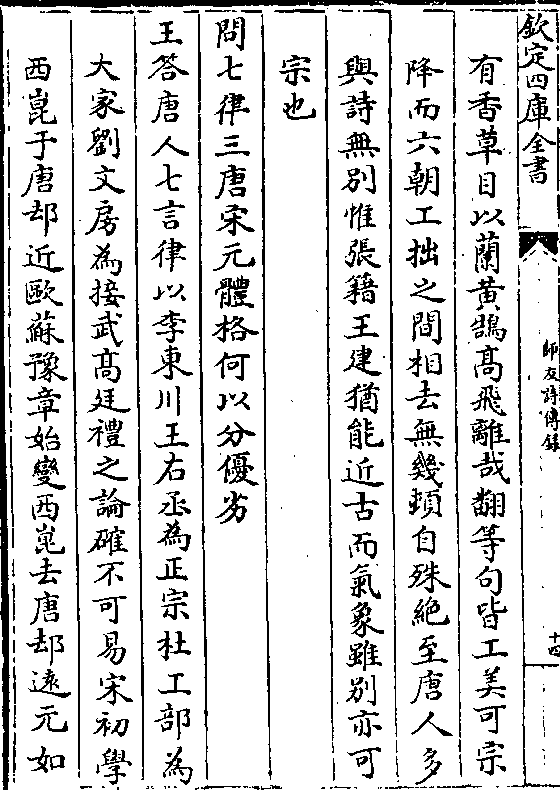 欽定四庫全書
師友詩傳録
十四
有香草目以蘭黄鵠高飛離哉翻等句皆工美可宗
降而六朝工拙之間相去無幾頓自殊絶至唐人多
與詩無别惟張籍王建猶能近古而氣象雖别亦可
宗也
問七律三唐宋元體格何以分優劣
王答唐人七言律以李東川王右丞為正宗杜工部為
大家劉文房為接武髙廷禮之論確不可易宋初學
西崑于唐却近歐蘇豫章始變西崑去唐却遠元如